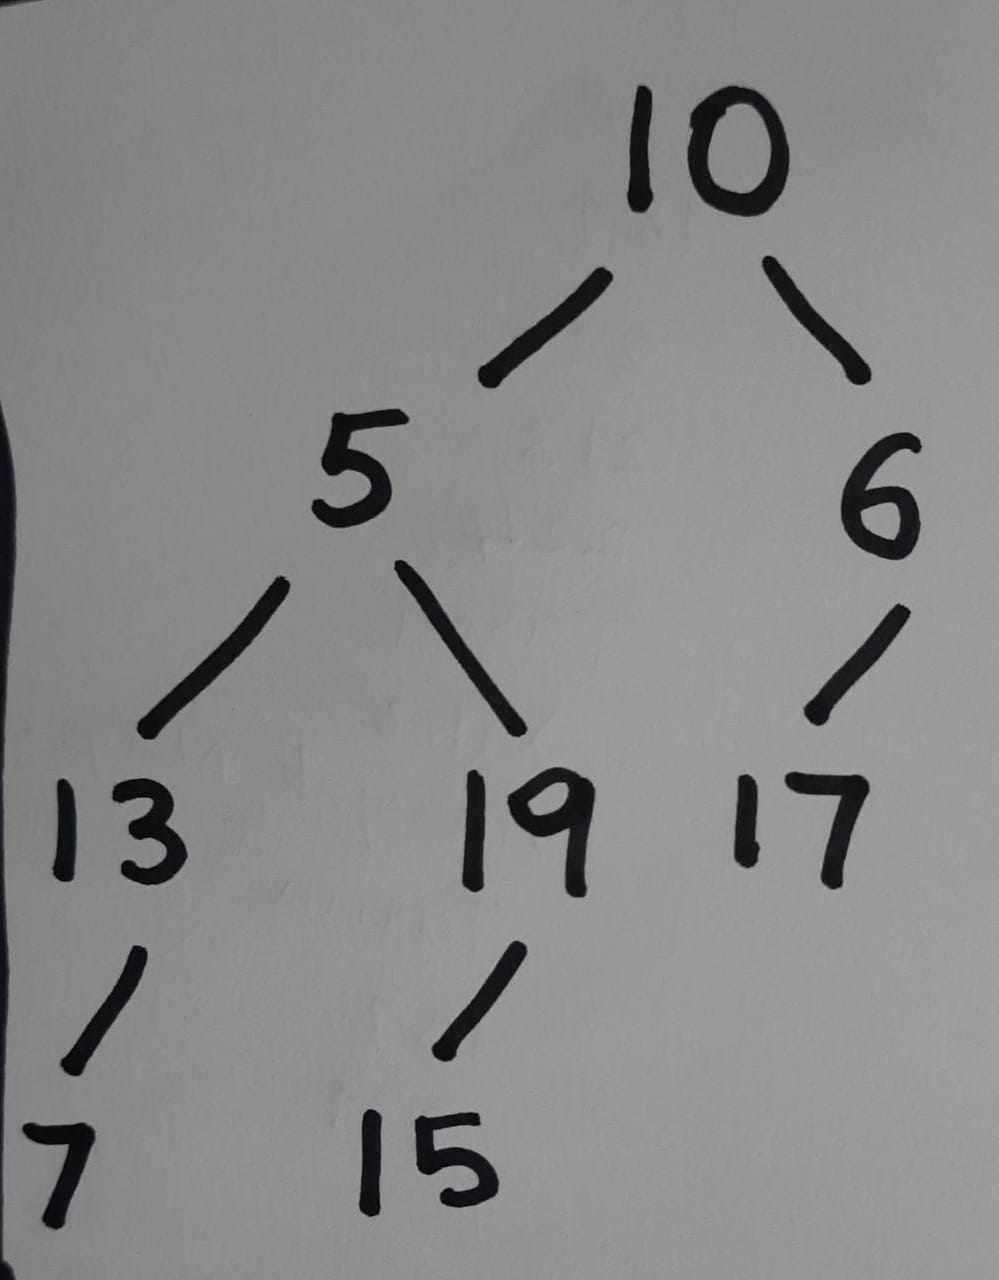 10
5 6
13 19 17
7 15